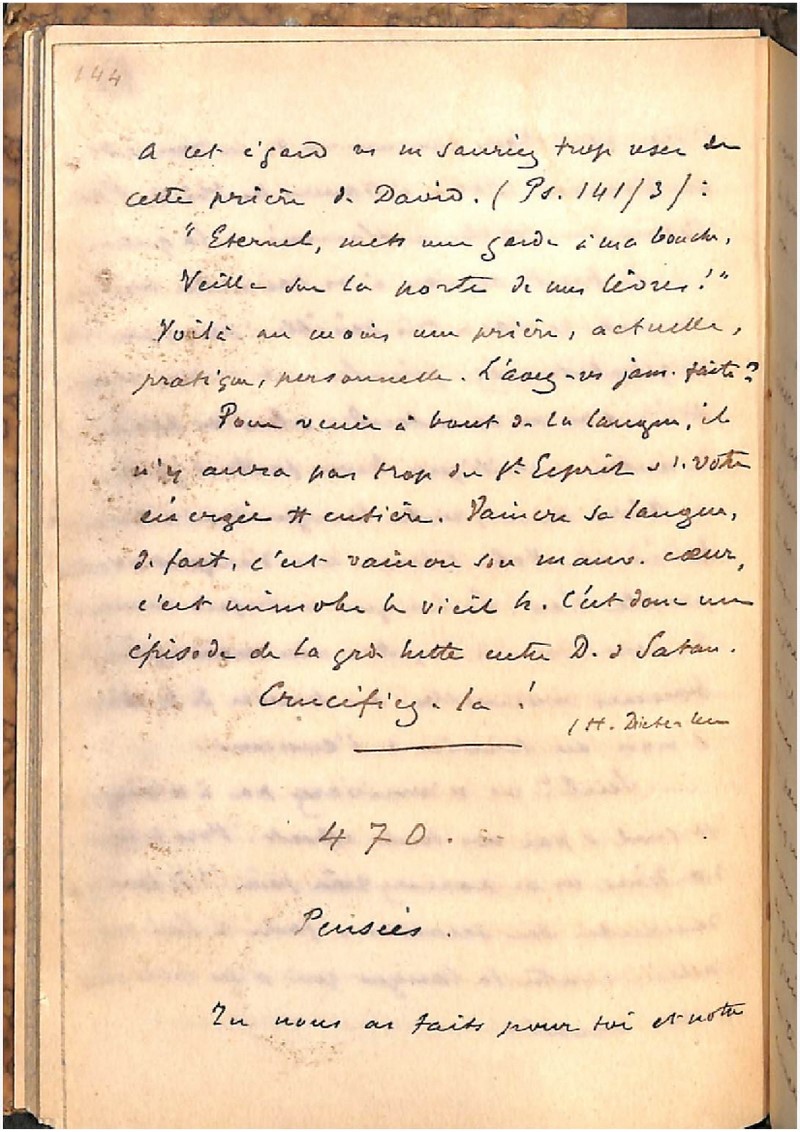 144
A cet égard vs ne sauriez trop user de
cette prière de David. (Ps. 141/3) :
"Eternel, mets une garde à ma bouche,
Veille sur la porte de mes lèvres !"
Voilà au moins une prière, actuelle,
pratique, personnelle. L'avez-vs jam. faite ?
Pour venir à bout de la langue, il
n'y aura pas trop du St Esprit & de votre
énergie entière. Vaincre sa langue,
de fait, c'est vaincre son mauv. cœur,
c'est immoler le vieil h. C'est donc un
épisode de la grde lutte entre D. & Satan.
Crucifiez-la !
(H. Dieterlen
470.
Pensées.
Tu nous as faits pour toi et notre